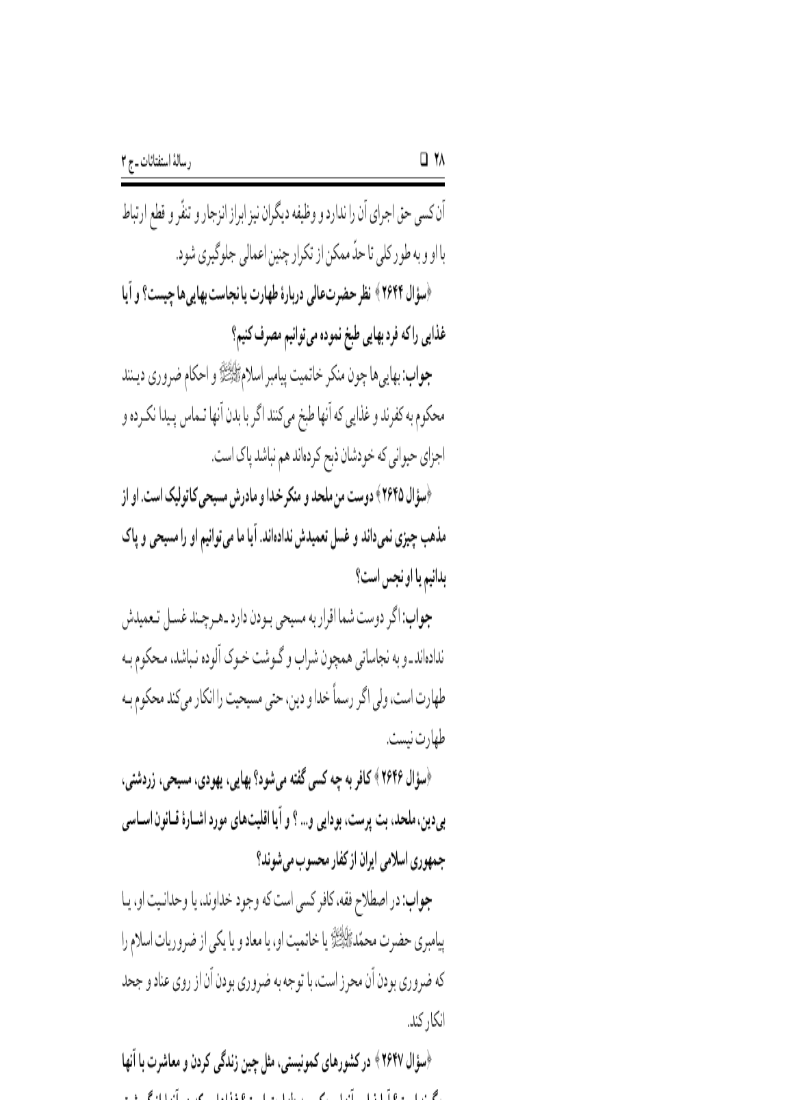 ۲۸ □ رسالهٔ استفتائات ـ ج ۳
آن کسی حق اجرای آن را ندارد و وظیفه دیگران نیز ابراز انزجار و تنفّر و قطع ارتباط
با او و به طور کلی تا حدّ ممکن از تکرار چنین اعمالی جلوگیری شود.
﴿سؤال ۲۶۴۴﴾ نظر حضرت‌عالی دربارهٔ طهارت یا نجاست بهایی‌ها چیست؟ و آیا
غذایی را که فرد بهایی طبخ نموده می‌توانیم مصرف کنیم؟
جواب: بهایی‌ها چون منکر خاتمیت پیامبر اسلامﷺ و احکام ضروری دیـنند
محکوم به کفرند و غذایی که آنها طبخ می‌کنند اگر با بدن آنها تـماس پـیدا نکـرده و
اجزای حیوانی که خودشان ذبح کرده‌اند هم نباشد پاک است.
﴿سؤال ۲۶۴۵﴾ دوست من ملحد و منکر خدا و مادرش مسیحی کاتولیک است. او از
مذهب چیزی نمی‌داند و غسل تعمیدش نداده‌اند. آیا ما می‌توانیم او را مسیحی و پاک
بدانیم یا او نجس است؟
جواب: اگر دوست شما اقرار به مسیحی بـودن دارد ـ هـرچـند غسـل تـعمیدش
نداده‌اند ـ و به نجاساتی همچون شراب و گـوشت خـوک آلوده نـباشد، مـحکوم بـه
طهارت است، ولی اگر رسماً خدا و دین، حتی مسیحیت را انکار می‌کند محکوم بـه
طهارت نیست.
﴿سؤال ۲۶۴۶﴾ کافر به چه کسی گفته می‌شود؟ بهایی، یهودی، مسیحی، زردشتی،
بی‌دین، ملحد، بت پرست، بودایی و... ؟ و آیا اقلیت‌های مورد اشـارهٔ قـانون اسـاسی
جمهوری اسلامی ایران از کفار محسوب می‌شوند؟
جواب: در اصطلاح فقه، کافر کسی است که وجود خداوند، یا وحدانـیت او، یـا
پیامبری حضرت محمّدﷺ یا خاتمیت او، یا معاد و یا یکی از ضروریات اسلام را
که ضروری بودن آن محرز است، با توجه به ضروری بودن آن از روی عناد و جحد
انکار کند.
﴿سؤال ۲۶۴۷﴾ در کشورهای کمونیستی، مثل چین زندگی کردن و معاشرت با آنها